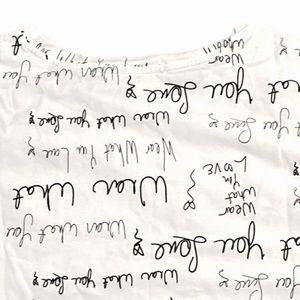 Wear What You Love &
You Love &
Wear What You
Wear What
Wear
What
You
LOVE
&
Wear What You Love &
Wear What You Love &
You Love &
You Love &
Wear What You
Wear